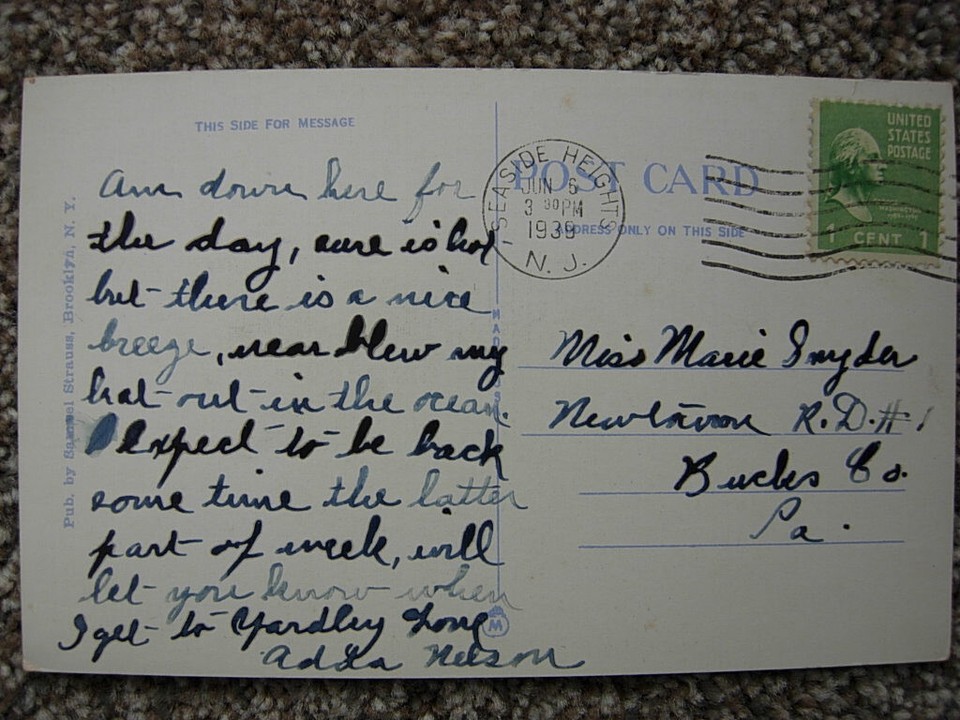 THIS SIDE FOR MESSAGE
Am down here for
the day, sure is hot
but there is a nice
breeze, near blew my
hat out in the ocean.
Expect to be back
some time the latter
part of week, will
let you know when
I get to Yardley
Nelson
Pub. by Samuel Strauss, Brooklyn, N. Y.
POST CARD
ADDRESS ONLY ON THIS SIDE
SEASIDE HEIGHTS
JUN 6
3 30 PM
1939
N. J.
UNITED
STATES
POSTAGE
1 CENT 1
Miss Marie Snyder
Newtown R.D.# 1
Bucks Co.
Pa.